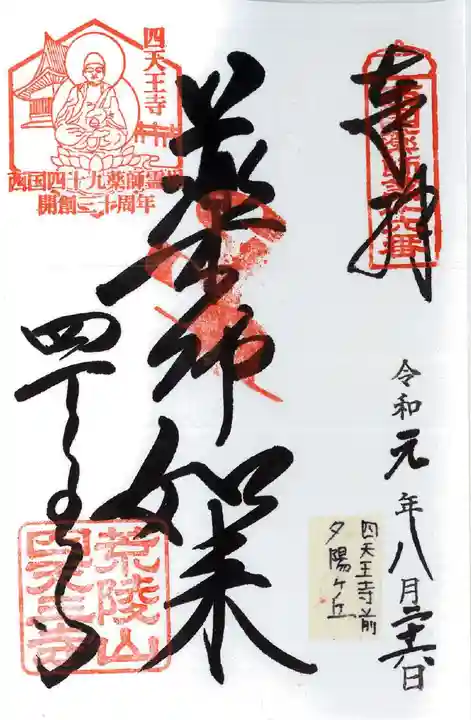 奉拝
西国薬師第十六番
令和元年八月二十六日
四天王寺前
夕陽ヶ丘
薬師如来
四天王寺
荒陵山
四天王寺
四天王寺
西国四十九薬師霊場
開創三十周年